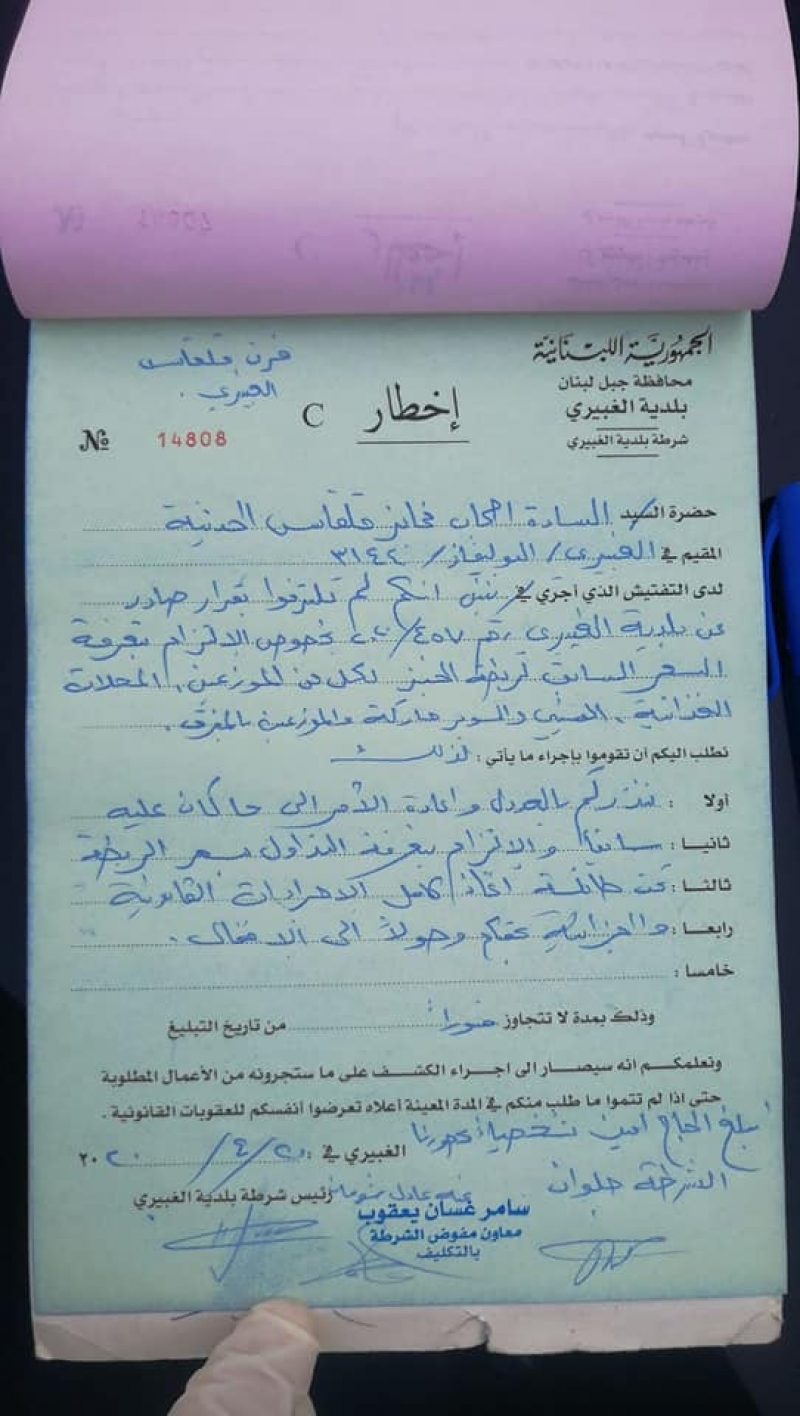 الجمهورية اللبنانية
محافظة جبل لبنان
بلدية الغبيري
شرطة بلدية الغبيري
فرن قلقاس
الغبيري.
إخطار C
№ 14808
حضرة السيد السادة اصحاب مخابز قلقاس الحديثة
المقيم في الغبيري / / ٣١٤٤
لدى التفتيش الذي أجري في / تبين انكم لم تلتزموا بقرار صادر
عن بلدية الغبيري رقم بخصوص الالتزام بتعرفة
السعر السابق لربطة الخبز لكل من الموزعين، المحلات
الغذائية، الميني والسوبر ماركة والموزعين بالمفرق.
نطلب اليكم أن تقوموا بإجراء ما يأتي: لذلك
أولا : ننذركم بالعدول واعادة الأمر الى ما كان عليه
ثانيا : سابقا والالتزام بتعرفة التداول بسعر الربطة
ثالثا : تحت طائلة اتخاذ كامل الاجراءات القانونية
رابعا : والجزائية بحقكم وصولاً الى الاقفال.
خامسا :
وذلك بمدة لا تتجاوز فوراً من تاريخ التبليغ
ونعلمكم انه سيصار الى اجراء الكشف على ما ستجرونه من الأعمال المطلوبة
حتى اذا لم تتموا ما طلب منكم في المدة المعينة أعلاه تعرضوا أنفسكم للعقوبات القانونية .
أبلغ الحاج امين شخصياً بحضورنا
الغبيري في : ٢٠/٤/٢٠٢٠
الشرطة حلوان
رئيس شرطة بلدية الغبيري
سامر غسان يعقوب
معاون مفوض الشرطة
بالتكليف